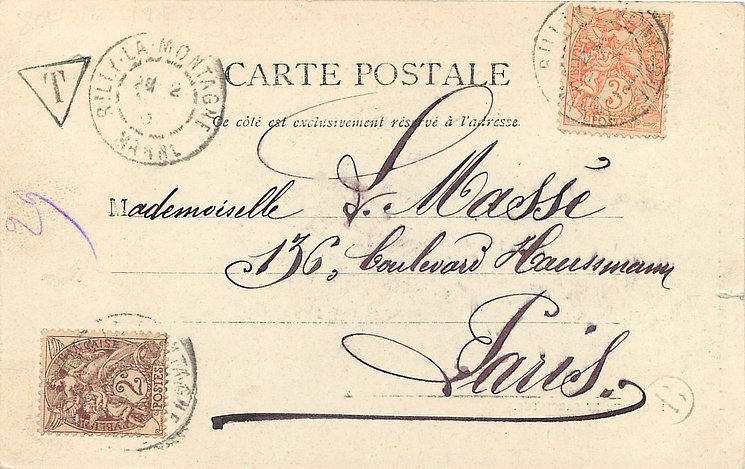 T
RILLY-LA-MONTAGNE
MARNE
CARTE POSTALE
Ce côté est exclusivement réservé à l'adresse.
3
POSTES
Mademoiselle L. Massé
136, Boulevard Haussmann
Paris.
29
2
POSTES